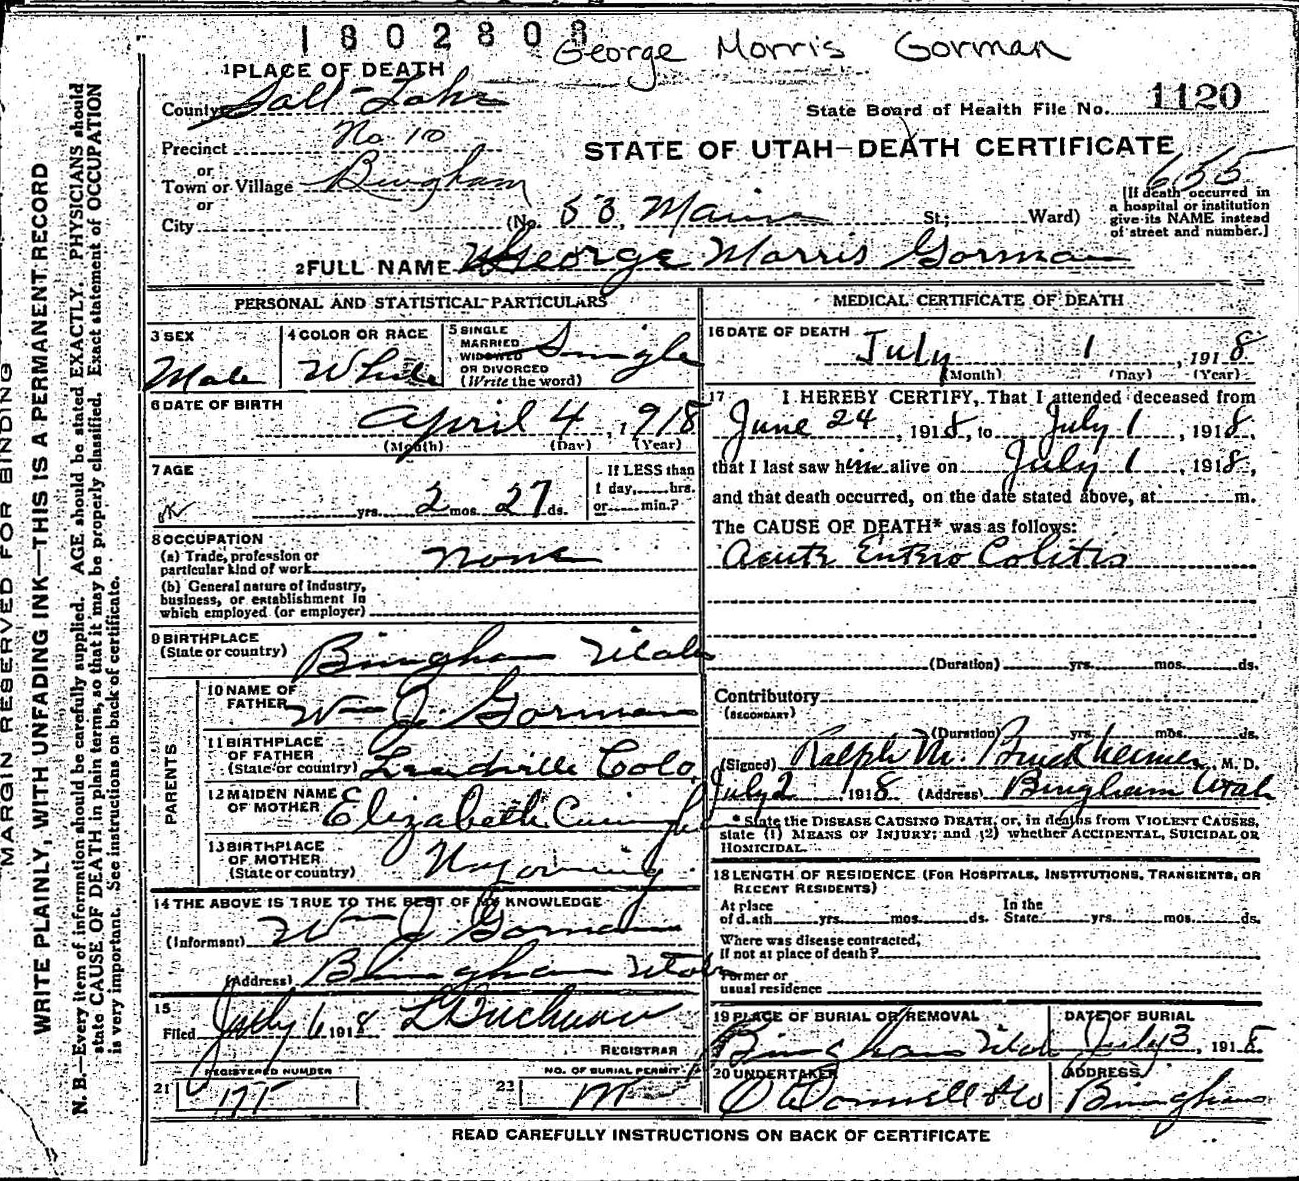 1802808
George Morris Gorman
1 PLACE OF DEATH
County Salt Lake
State Board of Health File No. 1120
Precinct No 10
STATE OF UTAH—DEATH CERTIFICATE
or
655
Town or Village Bingham
or
City (No. 53 Main St; Ward)
[If death occurred in a hospital or institution give its NAME instead of street and number.]
2 FULL NAME George Morris Gorman
PERSONAL AND STATISTICAL PARTICULARS
3 SEX Male
4 COLOR OR RACE White
5 SINGLE MARRIED WIDOWED OR DIVORCED (Write the word) Single
6 DATE OF BIRTH
April 4, 1918
(Month) (Day) (Year)
7 AGE
yrs. 2 mos. 27 ds.
If LESS than 1 day, hrs. or min.?
8 OCCUPATION
(a) Trade, profession or particular kind of work None
(b) General nature of industry, business, or establishment in which employed (or employer)
9 BIRTHPLACE
(State or country) Bingham Utah
PARENTS
10 NAME OF FATHER Wm J. Gorman
11 BIRTHPLACE OF FATHER (State or country) Leadville Colo.
12 MAIDEN NAME OF MOTHER Elizabeth
13 BIRTHPLACE OF MOTHER (State or country) Wyoming
14 THE ABOVE IS TRUE TO THE BEST OF MY KNOWLEDGE
(Informant) Wm J. Gorman
(Address) Bingham Utah
15
Filed July 6 1918
REGISTRAR
REGISTERED NUMBER
21 177
NO. OF BURIAL PERMIT
MEDICAL CERTIFICATE OF DEATH
16 DATE OF DEATH
July 1, 1918
(Month) (Day) (Year)
17 I HEREBY CERTIFY, That I attended deceased from
June 24, 1918, to July 1, 1918,
that I last saw him alive on July 1, 1918,
and that death occurred, on the date stated above, at m.
The CAUSE OF DEATH* was as follows:
Acute Entero Colitis
(Duration) yrs. mos. ds.
Contributory
(SECONDARY)
(Duration) yrs. mos. ds.
(Signed) Ralph M. , M. D.
July 2 1918 (Address) Bingham Utah
* State the DISEASE CAUSING DEATH, or, in deaths from VIOLENT CAUSES,
state (1) MEANS OF INJURY; and (2) whether ACCIDENTAL, SUICIDAL OR
HOMICIDAL.
18 LENGTH OF RESIDENCE (FOR HOSPITALS, INSTITUTIONS, TRANSIENTS, OR
RECENT RESIDENTS)
At place of death yrs. mos. ds. In the State yrs. mos. ds.
Where was disease contracted,
if not at place of death?
Former or
usual residence
19 PLACE OF BURIAL OR REMOVAL
Bingham Utah
DATE OF BURIAL
July 3, 1918
20 UNDERTAKER
O'Donnell & Co
ADDRESS
Bingham
READ CAREFULLY INSTRUCTIONS ON BACK OF CERTIFICATE
MARGIN RESERVED FOR BINDING
WRITE PLAINLY, WITH UNFADING INK—THIS IS A PERMANENT RECORD
N. B.—Every item of information should be carefully supplied. AGE should be stated EXACTLY. PHYSICIANS should
state CAUSE OF DEATH in plain terms, so that it may be properly classified. Exact statement of OCCUPATION
is very important. See instructions on back of certificate.